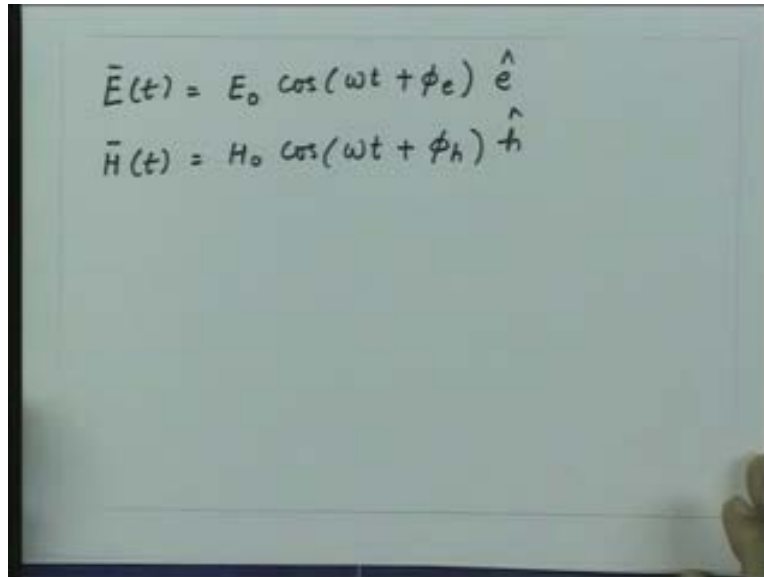 Ē(t) = E₀ cos(ωt + ϕₑ) ê
H̄(t) = H₀ cos(ωt + ϕₕ) ĥ